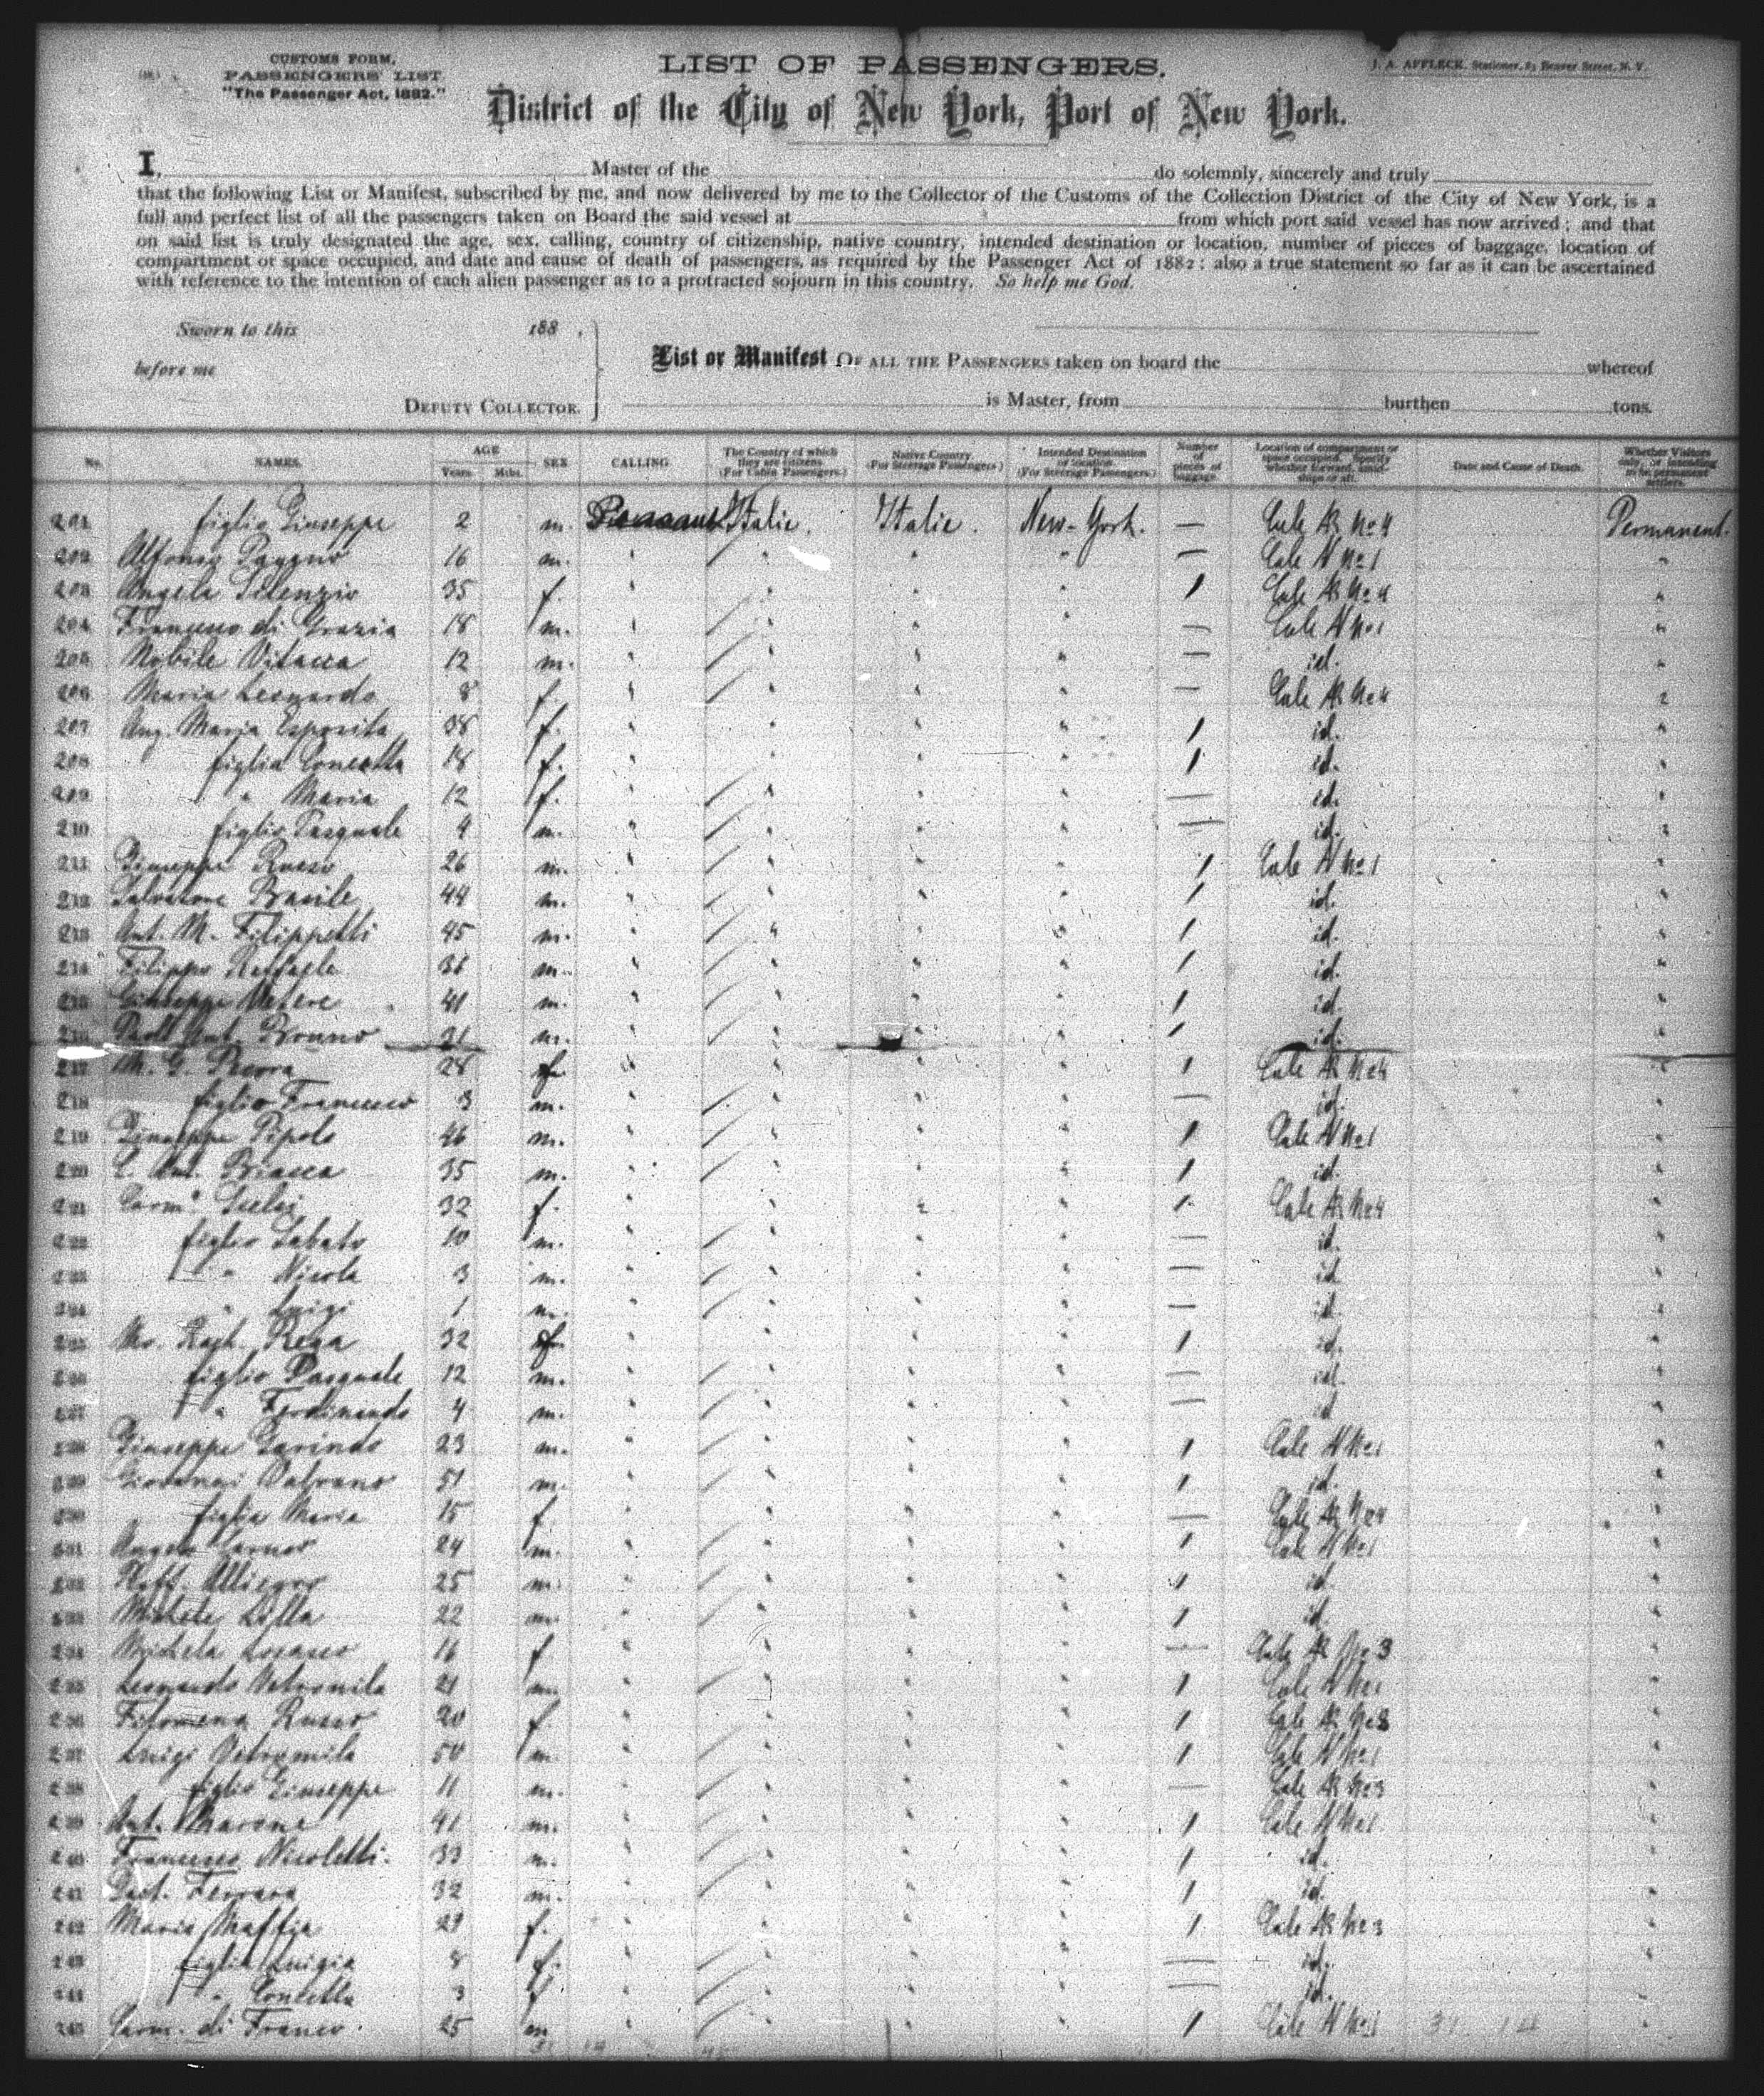 CUSTOMS FORM,
PASSENGERS' LIST.
"The Passenger Act, 1882."
LIST OF PASSENGERS.
J. A. AFFLECK, Stationer, 83 Beaver Street, N. Y.
District of the City of New York, Port of New York.
I, Master of the do solemnly, sincerely and truly
that the following List or Manifest, subscribed by me, and now delivered by me to the Collector of the Customs of the Collection District of the City of New York, is a
full and perfect list of all the passengers taken on Board the said vessel at from which port said vessel has now arrived; and that
on said list is truly designated the age, sex, calling, country of citizenship, native country, intended destination or location, number of pieces of baggage, location of
compartment or space occupied, and date and cause of death of passengers, as required by the Passenger Act of 1882; also a true statement so far as it can be ascertained
with reference to the intention of each alien passenger as to a protracted sojourn in this country. So help me God.
Sworn to this 188 ,
before me
DEPUTY COLLECTOR.
List or Manifest OF ALL THE PASSENGERS taken on board the whereof
is Master, from burthen tons.
No. NAMES. AGE Years. Mths. SEX CALLING. The Country of which they are citizens. (For Cabin Passengers.) Native Country. (For Steerage Passengers.) Intended Destination or location. (For Steerage Passengers.) Number of pieces of baggage. Location of compartment or space occupied. Specify whether forward, amidships or aft. Date and Cause of Death. Whether Visitors only, or intending to be permanent settlers.
201 figlio Giuseppe 2 m. Italie. Italie. New-York. — Cale AR No 4 Permanent.
202 Alfonso Pagano 16 m. " " " — Cale AV No 1 "
203 Angela 35 f. " " " 1 Cale AR No 4 "
204 Francesco di Grazia 18 m. " " " — Cale AV No 1 "
205 Nobile Vitacca 12 m. " " " — id. "
206 Maria Leonardo 8 f. " " " — Cale AR No 4 "
207 Ang. Maria Esposito 38 f. " " " 1 id. "
208 figlia Concetta 18 f. " " " 1 id. "
209 " Maria 12 f. " " " — id. "
210 figlio Pasquale 4 m. " " " — id. "
211 Giuseppe Russo 26 m. " " " 1 Cale AV No 1 "
212 Salvatore Basile 44 m. " " " 1 id. "
213 Ant. M. Filippetti 45 m. " " " 1 id. "
214 Filippo Raffaele 36 m. " " " 1 id. "
215 Giuseppe Vetere 41 m. " " " 1 id. "
216 Ant. Bruno 31 m. " " " 1 id. "
217 M. G. Pecora 28 f. " " " 1 Cale AR No 4 "
218 figlio Francesco 3 m. " " " — id. "
219 Giuseppe Pipolo 46 m. " " " 1 Cale AV No 1 "
220 Ant. Biasca 35 m. " " " 1 id. "
221 Carm.a 32 f. " " " 1 Cale AR No 4 "
222 figlio Sabato 10 m. " " " — id. "
223 " Nicola 3 m. " " " — id. "
224 " Luigi 1 m. " " " — id. "
225 Rega 32 f. " " " 1 id. "
226 figlio Pasquale 12 m. " " " — id. "
227 " Ferdinando 4 m. " " " — id. "
228 Giuseppe 23 m. " " " 1 Cale AV No 1 "
229 Giovanni 51 m. " " " 1 id. "
230 figlia Maria 15 f. " " " — Cale AR No 4 "
231 24 m. " " " 1 Cale AV No 1 "
232 Raff. Allegro 25 m. " " " 1 id. "
233 Michele Lilla 22 m. " " " 1 id. "
234 Michela 16 f. " " " — Cale AR No 3 "
235 Leonardo Petromila 21 m. " " " 1 Cale AV No 1 "
236 Filomena Russo 20 f. " " " 1 Cale AR No 3 "
237 Luigi Petromila 50 m. " " " 1 Cale AV No 1 "
238 figlio Giuseppe 11 m. " " " — Cale AR No 3 "
239 Ant. Marone 41 m. " " " 1 Cale AV No 1 "
240 Francesco Nicoletti. 33 m. " " " 1 id. "
241 Ferrara 32 m. " " " 1 id. "
242 Maria Maffia 29 f. " " " 1 Cale AR No 3 "
243 figlia Luigia 8 f. " " " — id. "
244 " Concetta 3 f. " " " — id. "
245 Carm. di Franco. 25 m " " " 1 Cale AV No 1 31 14 "